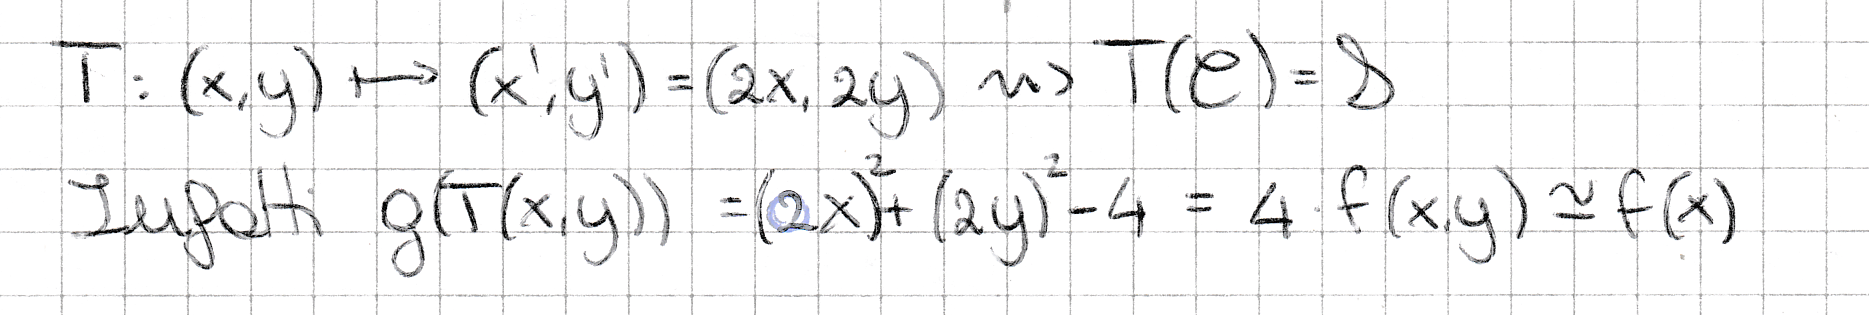 T: (x,y) ↦ (x',y') = (2x, 2y) ⇝ T(C) = D
Infatti g(T(x,y)) = (2x)² + (2y)² - 4 = 4·f(x,y) ≃ f(x)